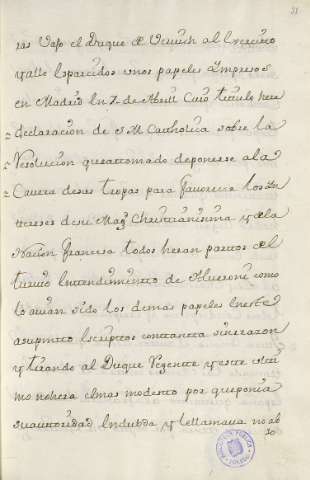 31
ras vajo el Duque de Veruich al Exercito
y alle Esparcidos unos papeles Ympresos
en Madrid En 7 de Abrill Cuio titulo hera
declaracion de S M Catholica sobre la
Resolucion que a tomado de ponerse a la
Cavera de sus tropas para favorecer los Yn
tereses de su Magd Christianisima y de la
Nacion francesa todos heran partos del
turvio Entendimiento de Alveroni como
lo avian sido los demas papeles En este
asumpto Escriptos contanta sin razon
y tirando al Duque Regente y este ulti
mo no hera el mas modesto por que ponia
su autoridad En duda y le llamava no ab
so